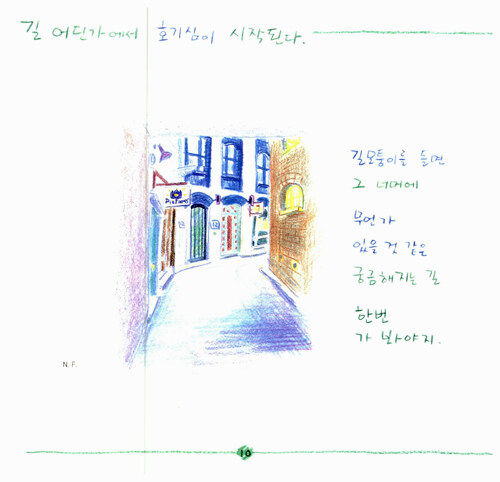 길 어딘가에서 호기심이 시작된다.
길모퉁이를 돌면
그 너머에
무언가
있을 것 같은
궁금해지는 길
한번
가 봐야지.
N. F.
10